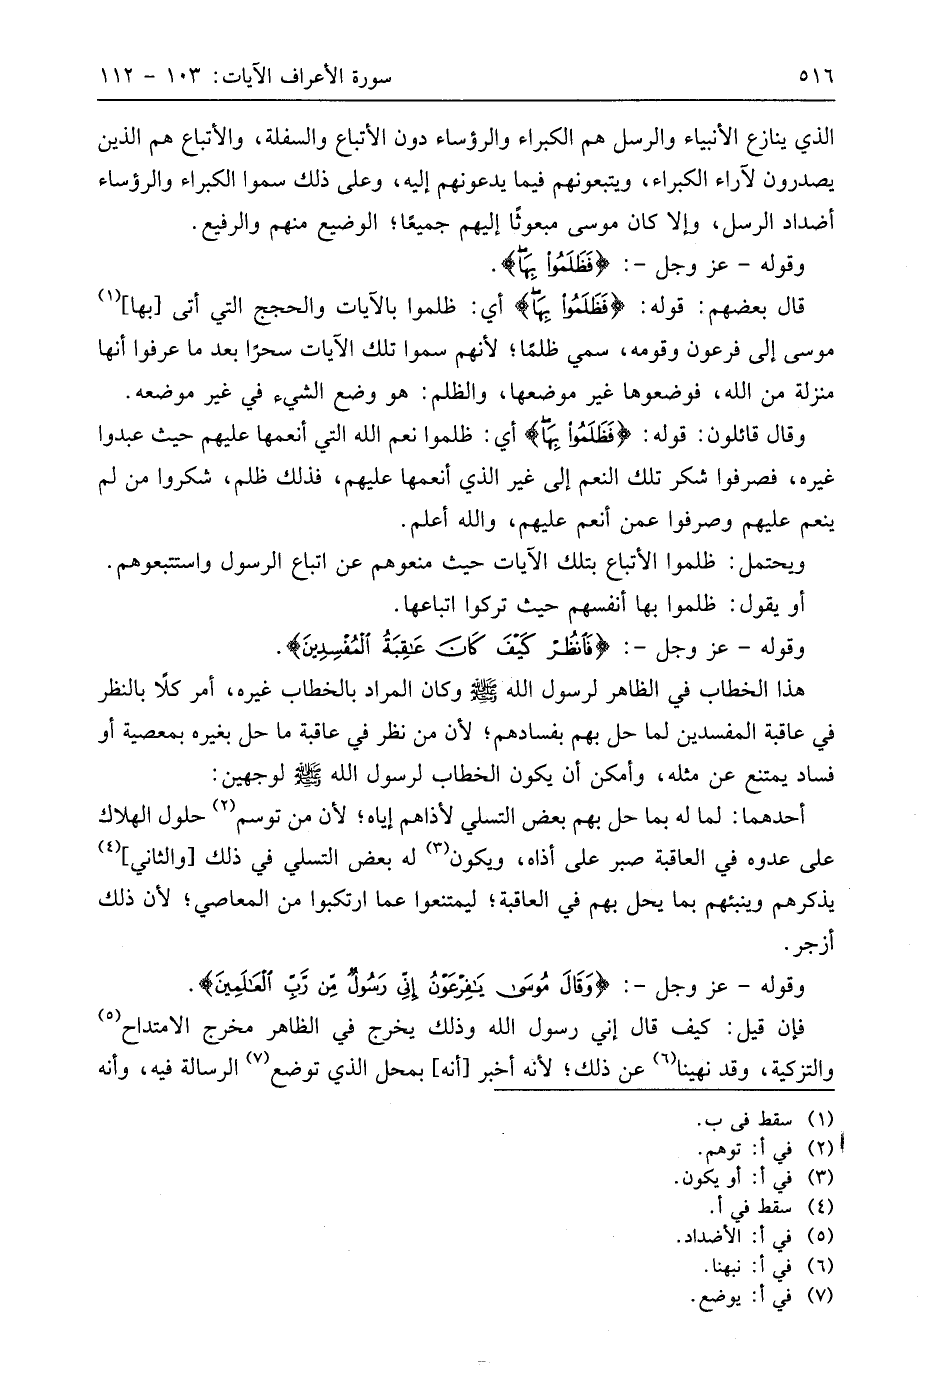 ٥١٦ سورة الأعراف الآيات: ١٠٣ - ١١٢
الذي ينازع الأنبياء والرسل هم الكبراء والرؤساء دون الأتباع والسفلة، والأتباع هم الذين
يصدرون لآراء الكبراء، ويتبعونهم فيما يدعونهم إليه، وعلى ذلك سموا الكبراء والرؤساء
أضداد الرسل، وإلا كان موسى مبعوثًا إليهم جميعًا؛ الوضيع منهم والرفيع.
وقوله - عز وجل -: ﴿فَظَلَمُواْ بِهَاۖ﴾.
قال بعضهم: قوله: ﴿فَظَلَمُواْ بِهَاۖ﴾ أي: ظلموا بالآيات والحجج التي أتى [بها](١)
موسى إلى فرعون وقومه، سمي ظلمًا؛ لأنهم سموا تلك الآيات سحرًا بعد ما عرفوا أنها
منزلة من الله، فوضعوها غير موضعها، والظلم: هو وضع الشيء في غير موضعه.
وقال قائلون: قوله: ﴿فَظَلَمُواْ بِهَاۖ﴾ أي: ظلموا نعم الله التي أنعمها عليهم حيث عبدوا
غيره، فصرفوا شكر تلك النعم إلى غير الذي أنعمها عليهم، فذلك ظلم، شكروا من لم
ينعم عليهم وصرفوا عمن أنعم عليهم، والله أعلم.
ويحتمل: ظلموا الأتباع بتلك الآيات حيث منعوهم عن اتباع الرسول واستتبعوهم.
أو يقول: ظلموا بها أنفسهم حيث تركوا اتباعها.
وقوله - عز وجل -: ﴿فَٱنظُرۡ كَيۡفَ كَانَ عَٰقِبَةُ ٱلۡمُفۡسِدِينَ﴾.
هذا الخطاب في الظاهر لرسول الله ﷺ وكان المراد بالخطاب غيره، أمر كلًا بالنظر
في عاقبة المفسدين لما حل بهم بفسادهم؛ لأن من نظر في عاقبة ما حل بغيره بمعصية أو
فساد يمتنع عن مثله، وأمكن أن يكون الخطاب لرسول الله ﷺ لوجهين:
أحدهما: لما له بما حل بهم بعض التسلي لأذاهم إياه؛ لأن من توسم(٢) حلول الهلاك
على عدوه في العاقبة صبر على أذاه، ويكون(٣) له بعض التسلي في ذلك [والثاني](٤)
يذكرهم وينبئهم بما يحل بهم في العاقبة؛ ليمتنعوا عما ارتكبوا من المعاصي؛ لأن ذلك
أزجر.
وقوله - عز وجل -: ﴿وَقَالَ مُوسَىٰ يَٰفِرۡعَوۡنُ إِنِّي رَسُولٞ مِّن رَّبِّ ٱلۡعَٰلَمِينَ﴾.
فإن قيل: كيف قال إني رسول الله وذلك يخرج في الظاهر مخرج الامتداح(٥)
والتزكية، وقد نهينا(٦) عن ذلك؛ لأنه أخبر [أنه] بمحل الذي توضع(٧) الرسالة فيه، وأنه
(١) سقط في ب.
(٢) في أ: توهم.
(٣) في أ: أو يكون.
(٤) سقط في أ.
(٥) في أ: الأضداد.
(٦) في أ: نبهنا.
(٧) في أ: يوضع.